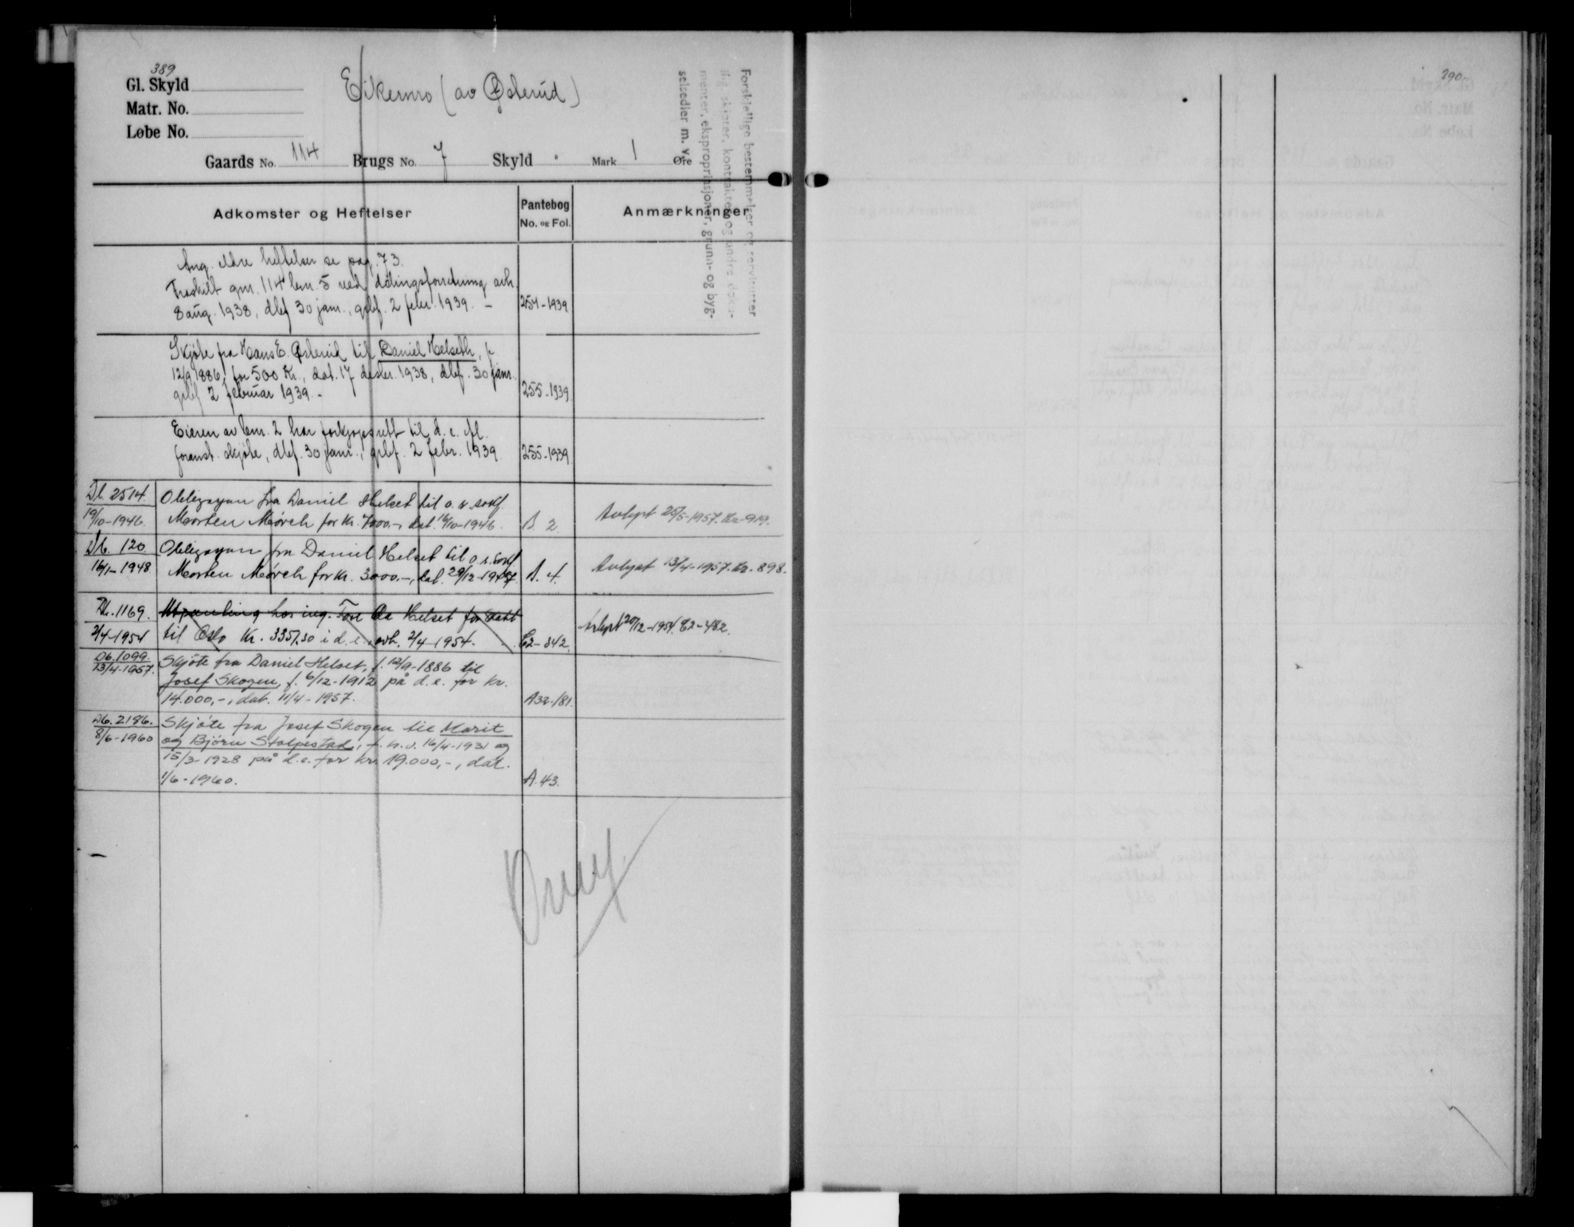 389
Gl. Skyld
Matr. No.
Løbe No.
Eikernro (av Østerud)
Gaards No. 114 Brugs No. 7 Skyld . Mark 1 Øre
Forskjellige bestemmelser og servitutter
menter, ekspropriasjoner, grunn- og byg-
selsedler m. v.
Adkomster og Heftelser
Pantebog
No. og Fol.
Anmærkninger
Ang. eldre heftelser se pag. 73.
Fraskilt gnr. 114 bnr. 5 ved delingsforretning avh.
8 aug. 1938, dbf 30 jan., grbf. 2 febr. 1939. - 254-1939
Skjøte fra Hans E. Østerud til Daniel Helseth, f.
12/9 1886, for 500 Kr., dat. 17 desbr. 1938, dbf. 30 jan.
grbf 2 februar 1939. - 255-1939
Eieren av bnr. 2 har forkjøpsrett til d. e. ifl.
foranst. skjøte, dbf. 30 jan., grbf. 2 febr. 1939 255-1939
Db. 2514. Obligasjon fra Daniel Helset til o.r.sakf.
19/10-1946. Morten Mørch for kr. 7000.-, dat. 16/10-1946. B 2 Avlyst 25/5-1957. B2-919.
Db. 120 Obligasjon fra Daniel Helset til o.r.sakf
16/1-1948 Morten Mørch for kr. 3000.-, dat. 29/12-1947 B. 4. Avlyst 13/4-1957. B2-898.
Db. 1169. Utpanting hos ing. Tore Helset for skatt
2/4-1954 til Oslo kr. 3357,30 i d. e. avh. 2/4-1954. B2-342. Avlyst 20/12-1954 B2-482.
Db. 1099 Skjøte fra Daniel Helset, f. 12/9-1886 til
13/4-1957. Josef Skogen, f. 6/12-1912 på d.e. for kr.
14.000,-, dat. 11/4-1957. A32-181.
Db. 2186. Skjøte fra Josef Skogen til Marit
8/6-1960 og Bjørn Stolpestad, f. h.v. 16/4-1931 og
15/3-1928 på d.e. for kr. 19.000,-, dat.
1/6-1960. A. 43.
390